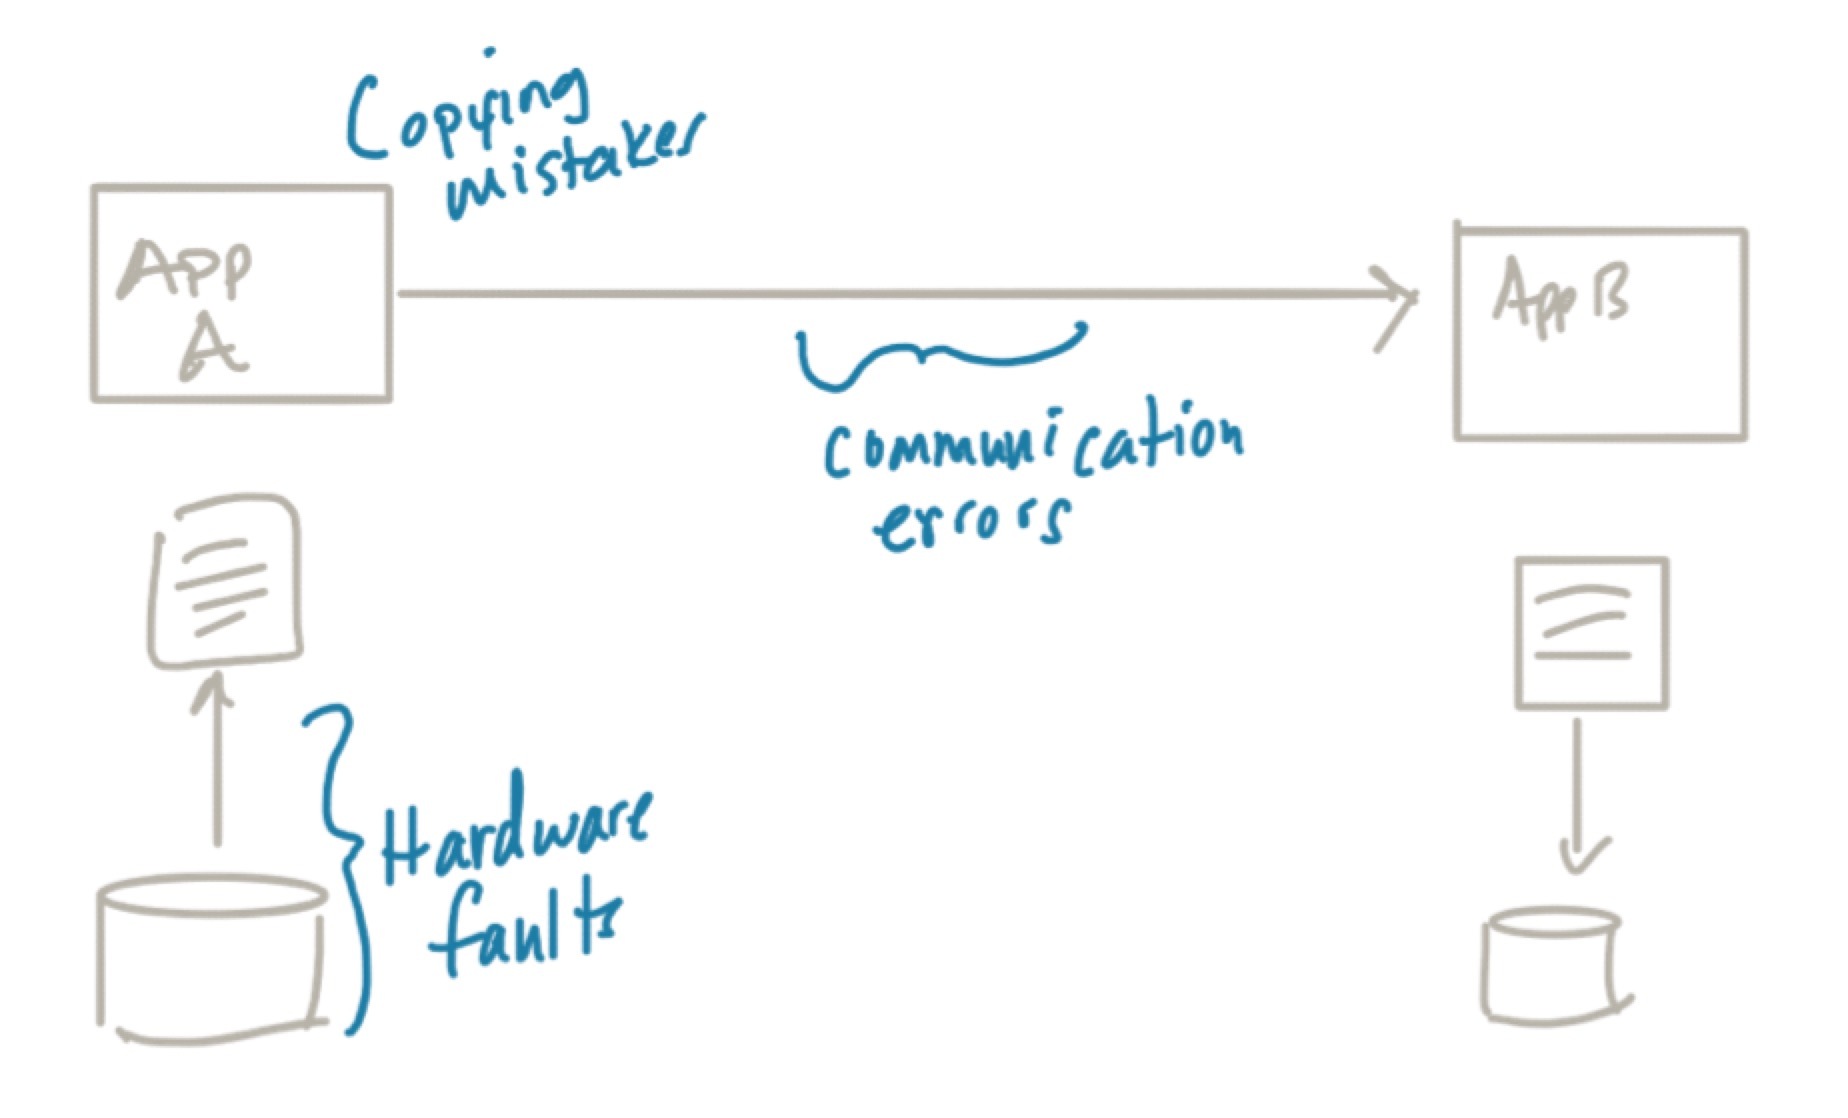 Copying
mistakes
App
A
App B
communication
errors
Hardware
faults